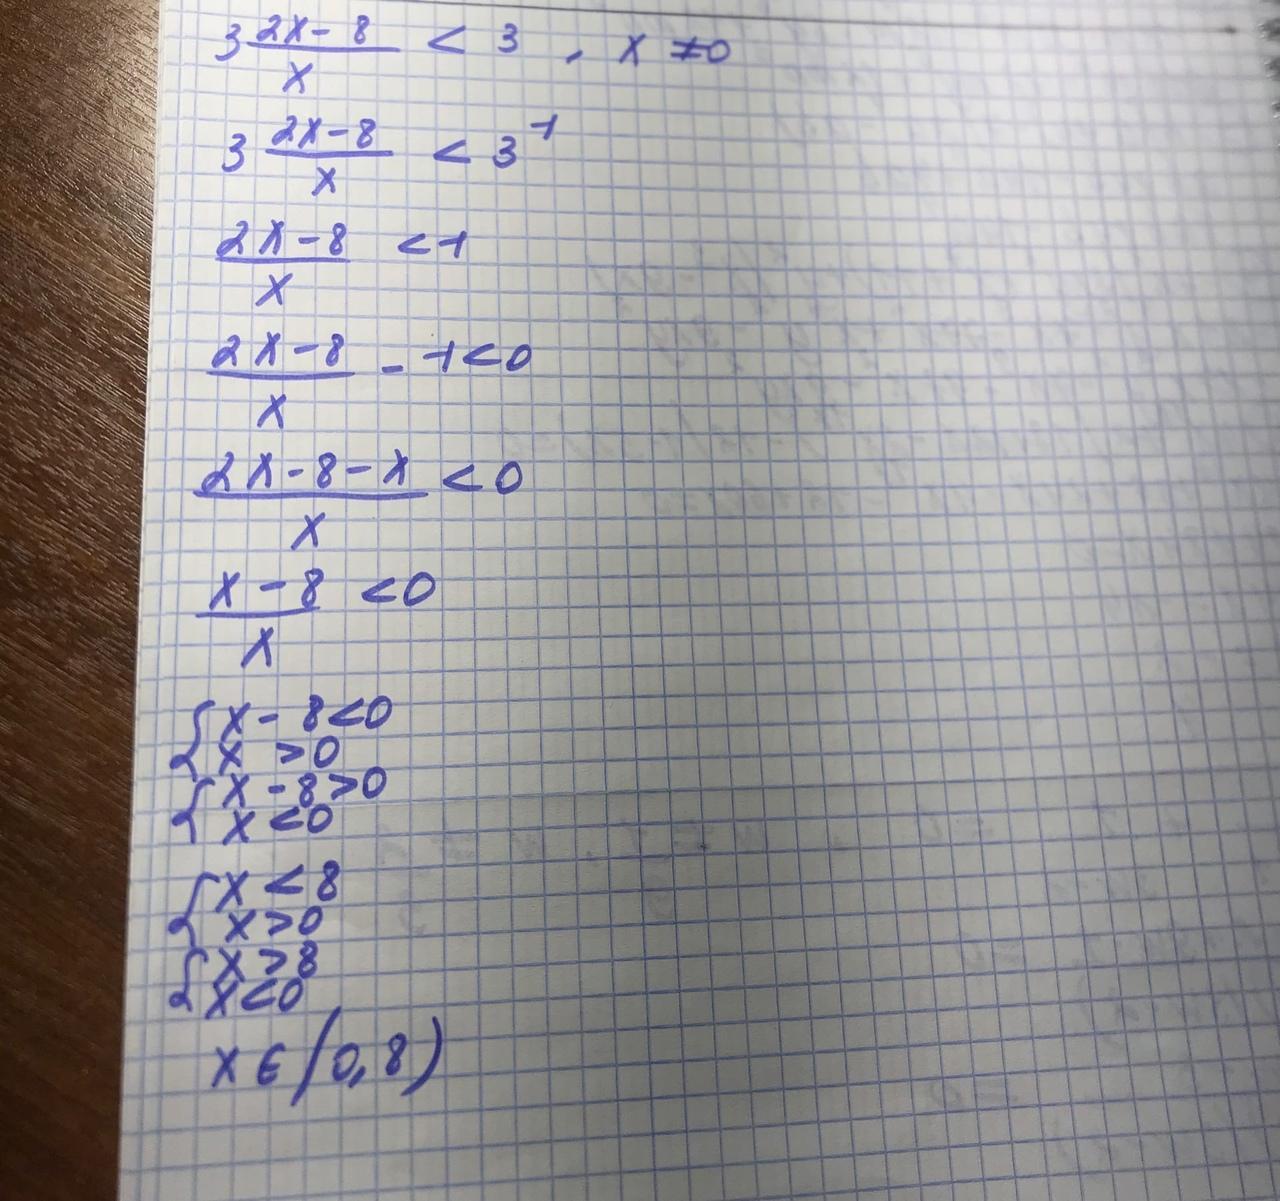 3^{\frac{2x-8}{x}} < 3, x ≠ 0
3^{\frac{2x-8}{x}} < 3^1
\frac{2x-8}{x} < 1
\frac{2x-8}{x} - 1 < 0
\frac{2x-8-x}{x} < 0
\frac{x-8}{x} < 0
{ x - 8 < 0
x > 0
{ x - 8 > 0
x < 0
{ x < 8
x > 0
{ x > 8
x < 0
x ∈ (0, 8)